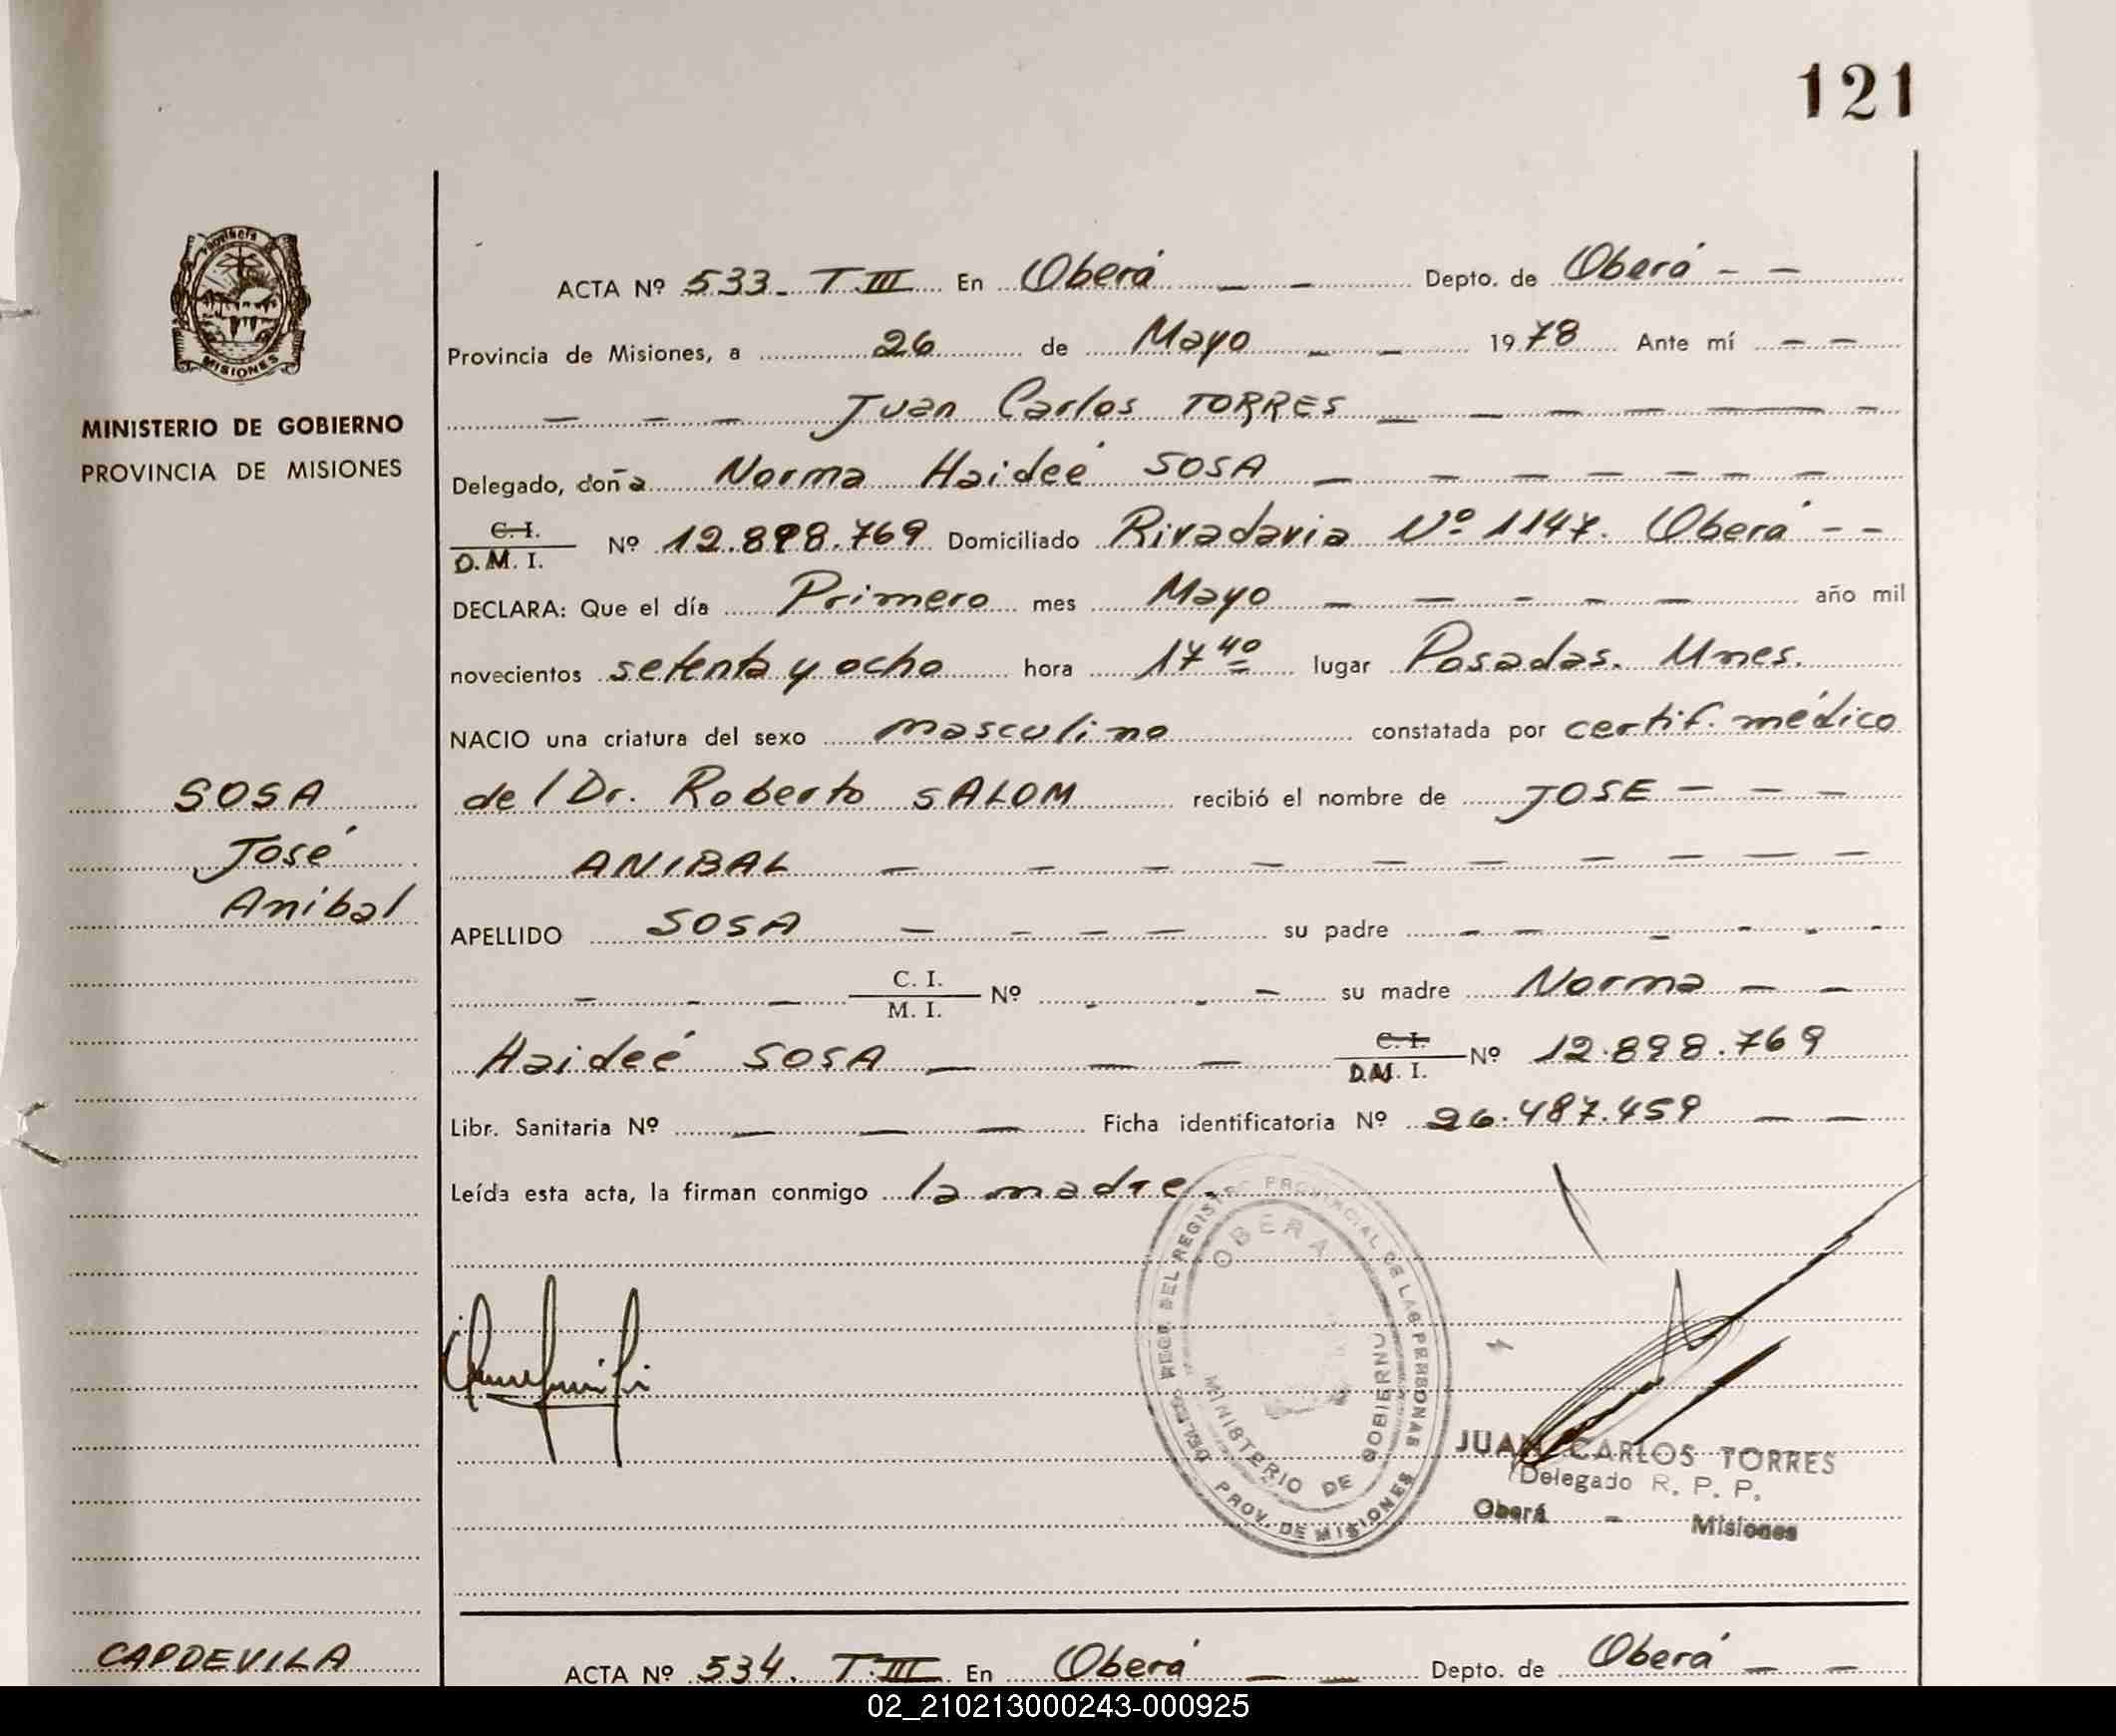 121
Provincia
MISIONES
MINISTERIO DE GOBIERNO
PROVINCIA DE MISIONES
ACTA Nº 533. T.III En Oberá — — Depto. de Oberá - —
Provincia de Misiones, a 26 de Mayo — — 1978 Ante mí — —
— — — Juan Carlos TORRES — — — — — —
Delegado, doña Norma Haideé SOSA — — — — — — —
C. I.
D. M. I. Nº 12.898.769 Domiciliado Rivadavia Nº 1147. Oberá - -
DECLARA: Que el día Primero mes Mayo — — - - — año mil
novecientos setenta y ocho hora 17 40 lugar Posadas. Mnes.
NACIO una criatura del sexo masculino constatada por certif. médico
del Dr. Roberto SALOM recibió el nombre de JOSE — — —
ANIBAL — — — — — — — — — —
SOSA
José
Anibal
APELLIDO SOSA — — — — su padre - — - - - -
— - — C. I.
M. I. Nº - - — su madre Norma — —
Haideé SOSA — — — C. I.
D.M. I. Nº 12.898.769
Libr. Sanitaria Nº — — — Ficha identificatoria Nº 26.487.459 — —
Leída esta acta, la firman conmigo la madre.
DELEG. REGD. DEL REGISTRO PROVINCIAL DE LAS PERSONAS
OBERA
MINISTERIO DE GOBIERNO
PROV. DE MISIONES
JUAN CARLOS TORRES
Delegado R. P. P.
Oberá - Misiones
CAPDEVILA
ACTA Nº 534. T.III En Oberá — — Depto. de Oberá — —
02_210213000243-000925